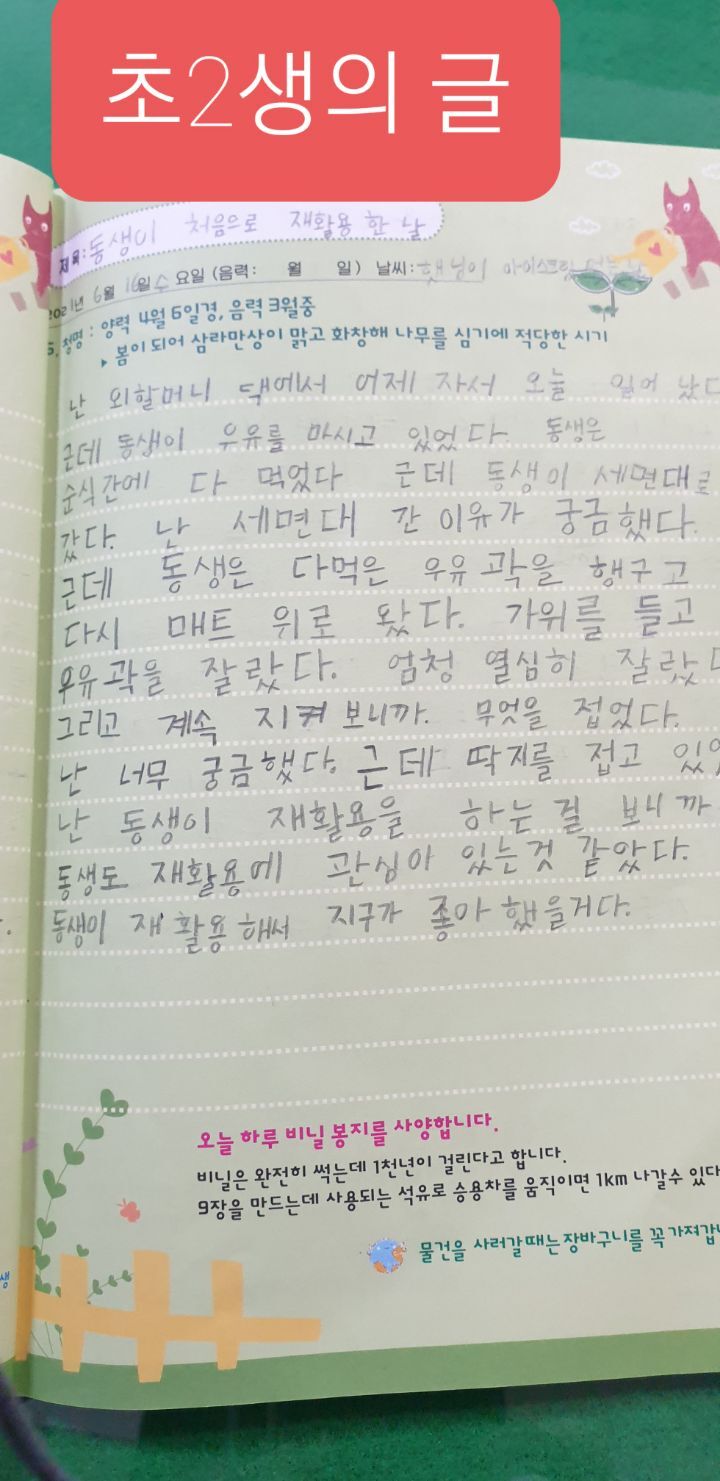 초2생의 글
제목: 동생이 처음으로 재활용 한 날
2021년 6월 16일 수요일 (음력: 월 일) 날씨: 햇님이 아이스크림
5. 청명 : 양력 4월 5일경, 음력 3월중
▸ 봄이 되어 삼라만상이 맑고 화창해 나무를 심기에 적당한 시기
난 외할머니 댁에서 어제 자서 오늘 일어 났다
근데 동생이 우유를 마시고 있었다. 동생은
순식간에 다 먹었다 근데 동생이 세면대로
갔다. 난 세면대 간 이유가 궁금했다.
근데 동생은 다먹은 우유곽을 행구고
다시 매트 위로 왔다. 가위를 들고
우유곽을 잘랐다. 엄청 열심히 잘랐다
그리고 계속 지켜 보니까. 무엇을 접었다.
난 너무 궁금했다. 근데 딱지를 접고 있었
난 동생이 재활용을 하는걸 보니까
동생도 재활용에 관심아 있는것 같았다.
동생이 재활용해서 지구가 좋아했을거다.
오늘 하루 비닐 봉지를 사양합니다.
비닐은 완전히 썩는데 1천년이 걸린다고 합니다.
9장을 만드는데 사용되는 석유로 승용차를 움직이면 1km 나갈수 있다
물건을 사러갈때는 장바구니를 꼭 가져갑니
생